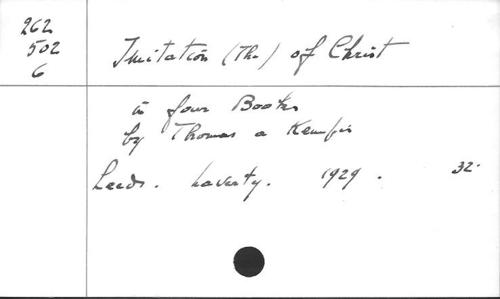 262
502
6
Imitation (The) of Christ
in four Books
by Thomas a Kempis
Leeds. Laverty. 1929. 32.